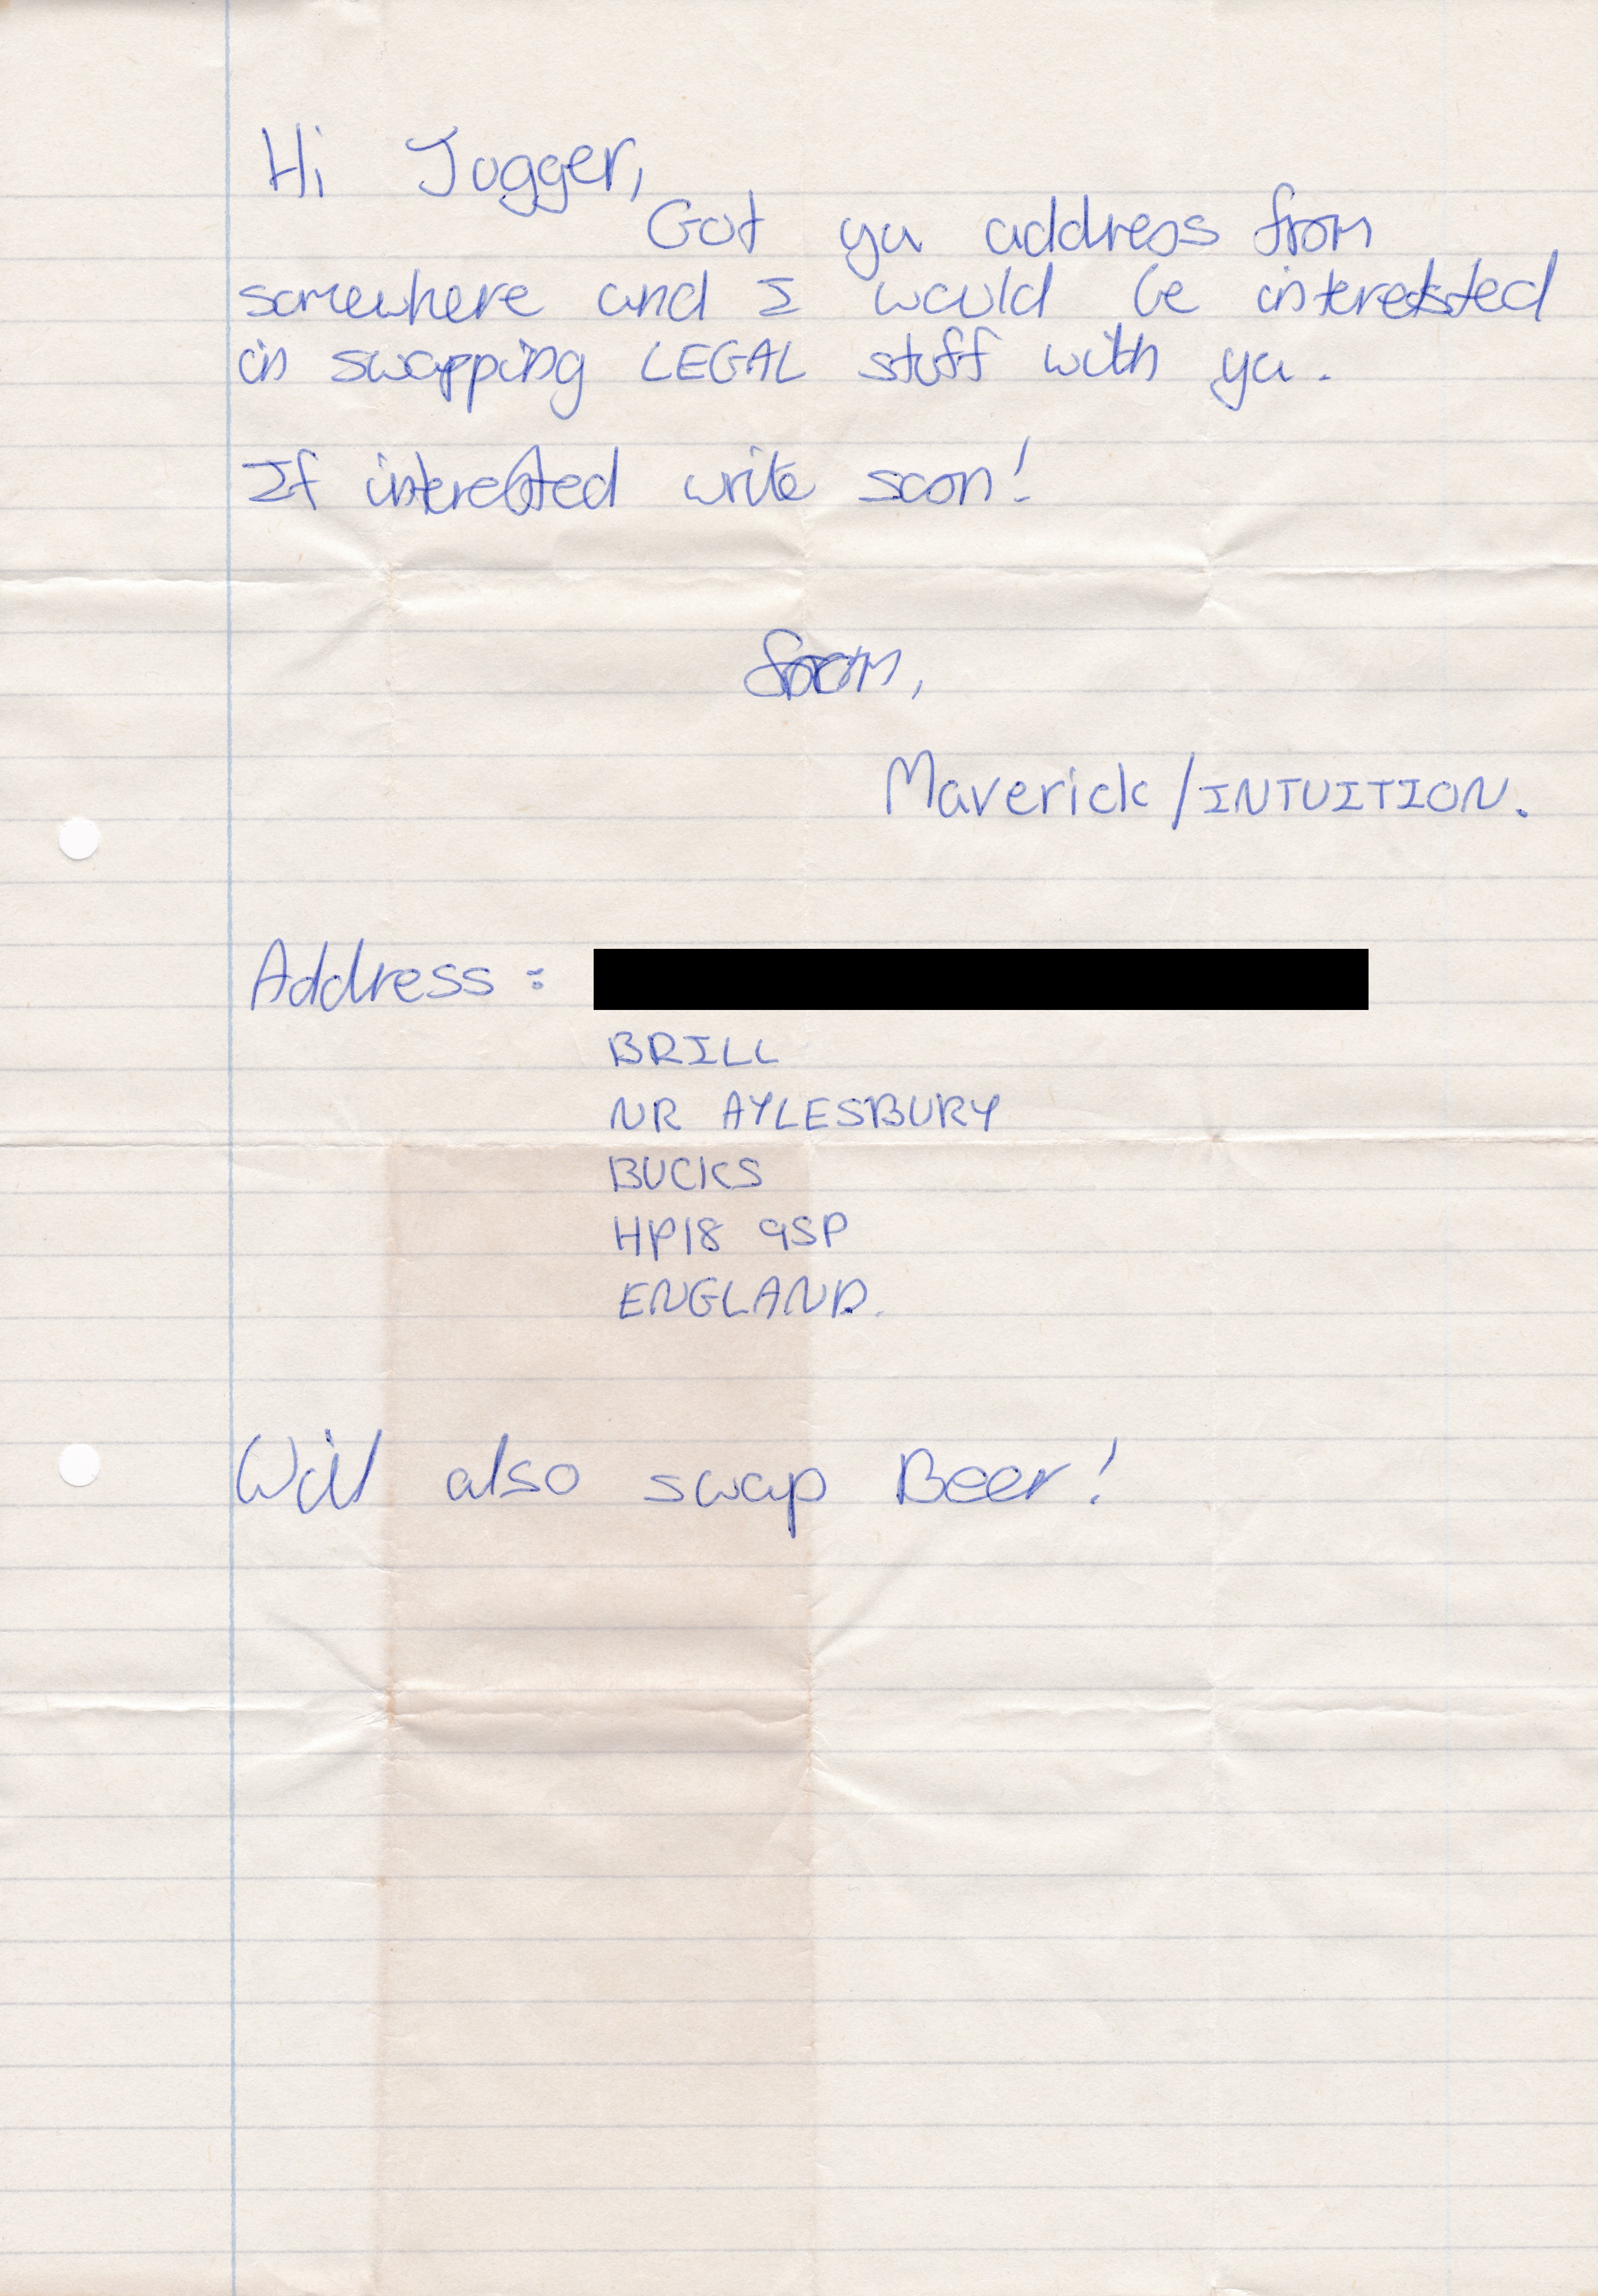 Hi Jogger,
Got ya address from
somewhere and I would be interested
in swapping LEGAL stuff with ya.
If interested write soon!
from,
Maverick/INTUITION.
Address:
BRILL
NR AYLESBURY
BUCKS
HP18 9SP
ENGLAND.
Will also swap Beer!